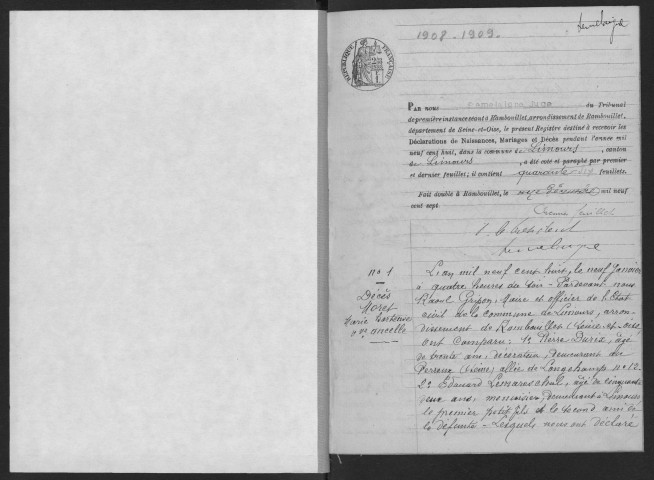 1908-1909
RÉPUBLIQUE FRANÇAISE
PAR NOUS du Tribunal
de première instance séant à Rambouillet, arrondissement de Rambouillet,
département de Seine-et-Oise, le présent Registre destiné à recevoir les
Déclarations de Naissances, Mariages et Décès pendant l'année mil
neuf cent huit, dans la commune de Limours, canton
de Limours, a été coté et paraphé par premier
et dernier feuillet; il contient quarante feuillets.
Fait double à Rambouillet, le Décembre mil neuf
cent sept.
Premier feuillet
Le Président
n° 1
Décès
Moret
Marie Hortense
Vve Ancelle
L'an mil neuf cent huit, le neuf Janvier
à quatre heures du soir - Pardevant nous
Raoul Grison, Maire et officier de l'Etat
civil de la commune de Limours, arron-
dissement de Rambouillet (Seine-et-Oise)
ont comparu: 1° Pierre Duria, âgé
de trente ans, décorateur, demeurant au
Perreux (Seine) allée de Longchamps n° 12
2° Edouard Lemareschal, âgé de cinquante
deux ans, menuisier, demeurant à Limours
le premier petit fils et le second ami de
la défunte - Lesquels nous ont déclaré